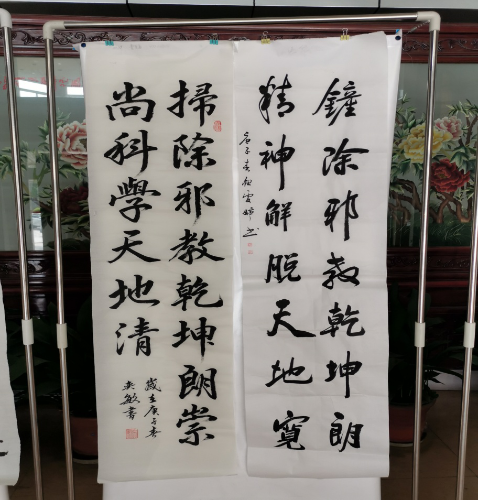 鏟除邪教乾坤朗
精神解脱天地寬
庚子春雪婷书
掃除邪教乾坤朗崇
尚科學天地清
歲在庚子春
敏書